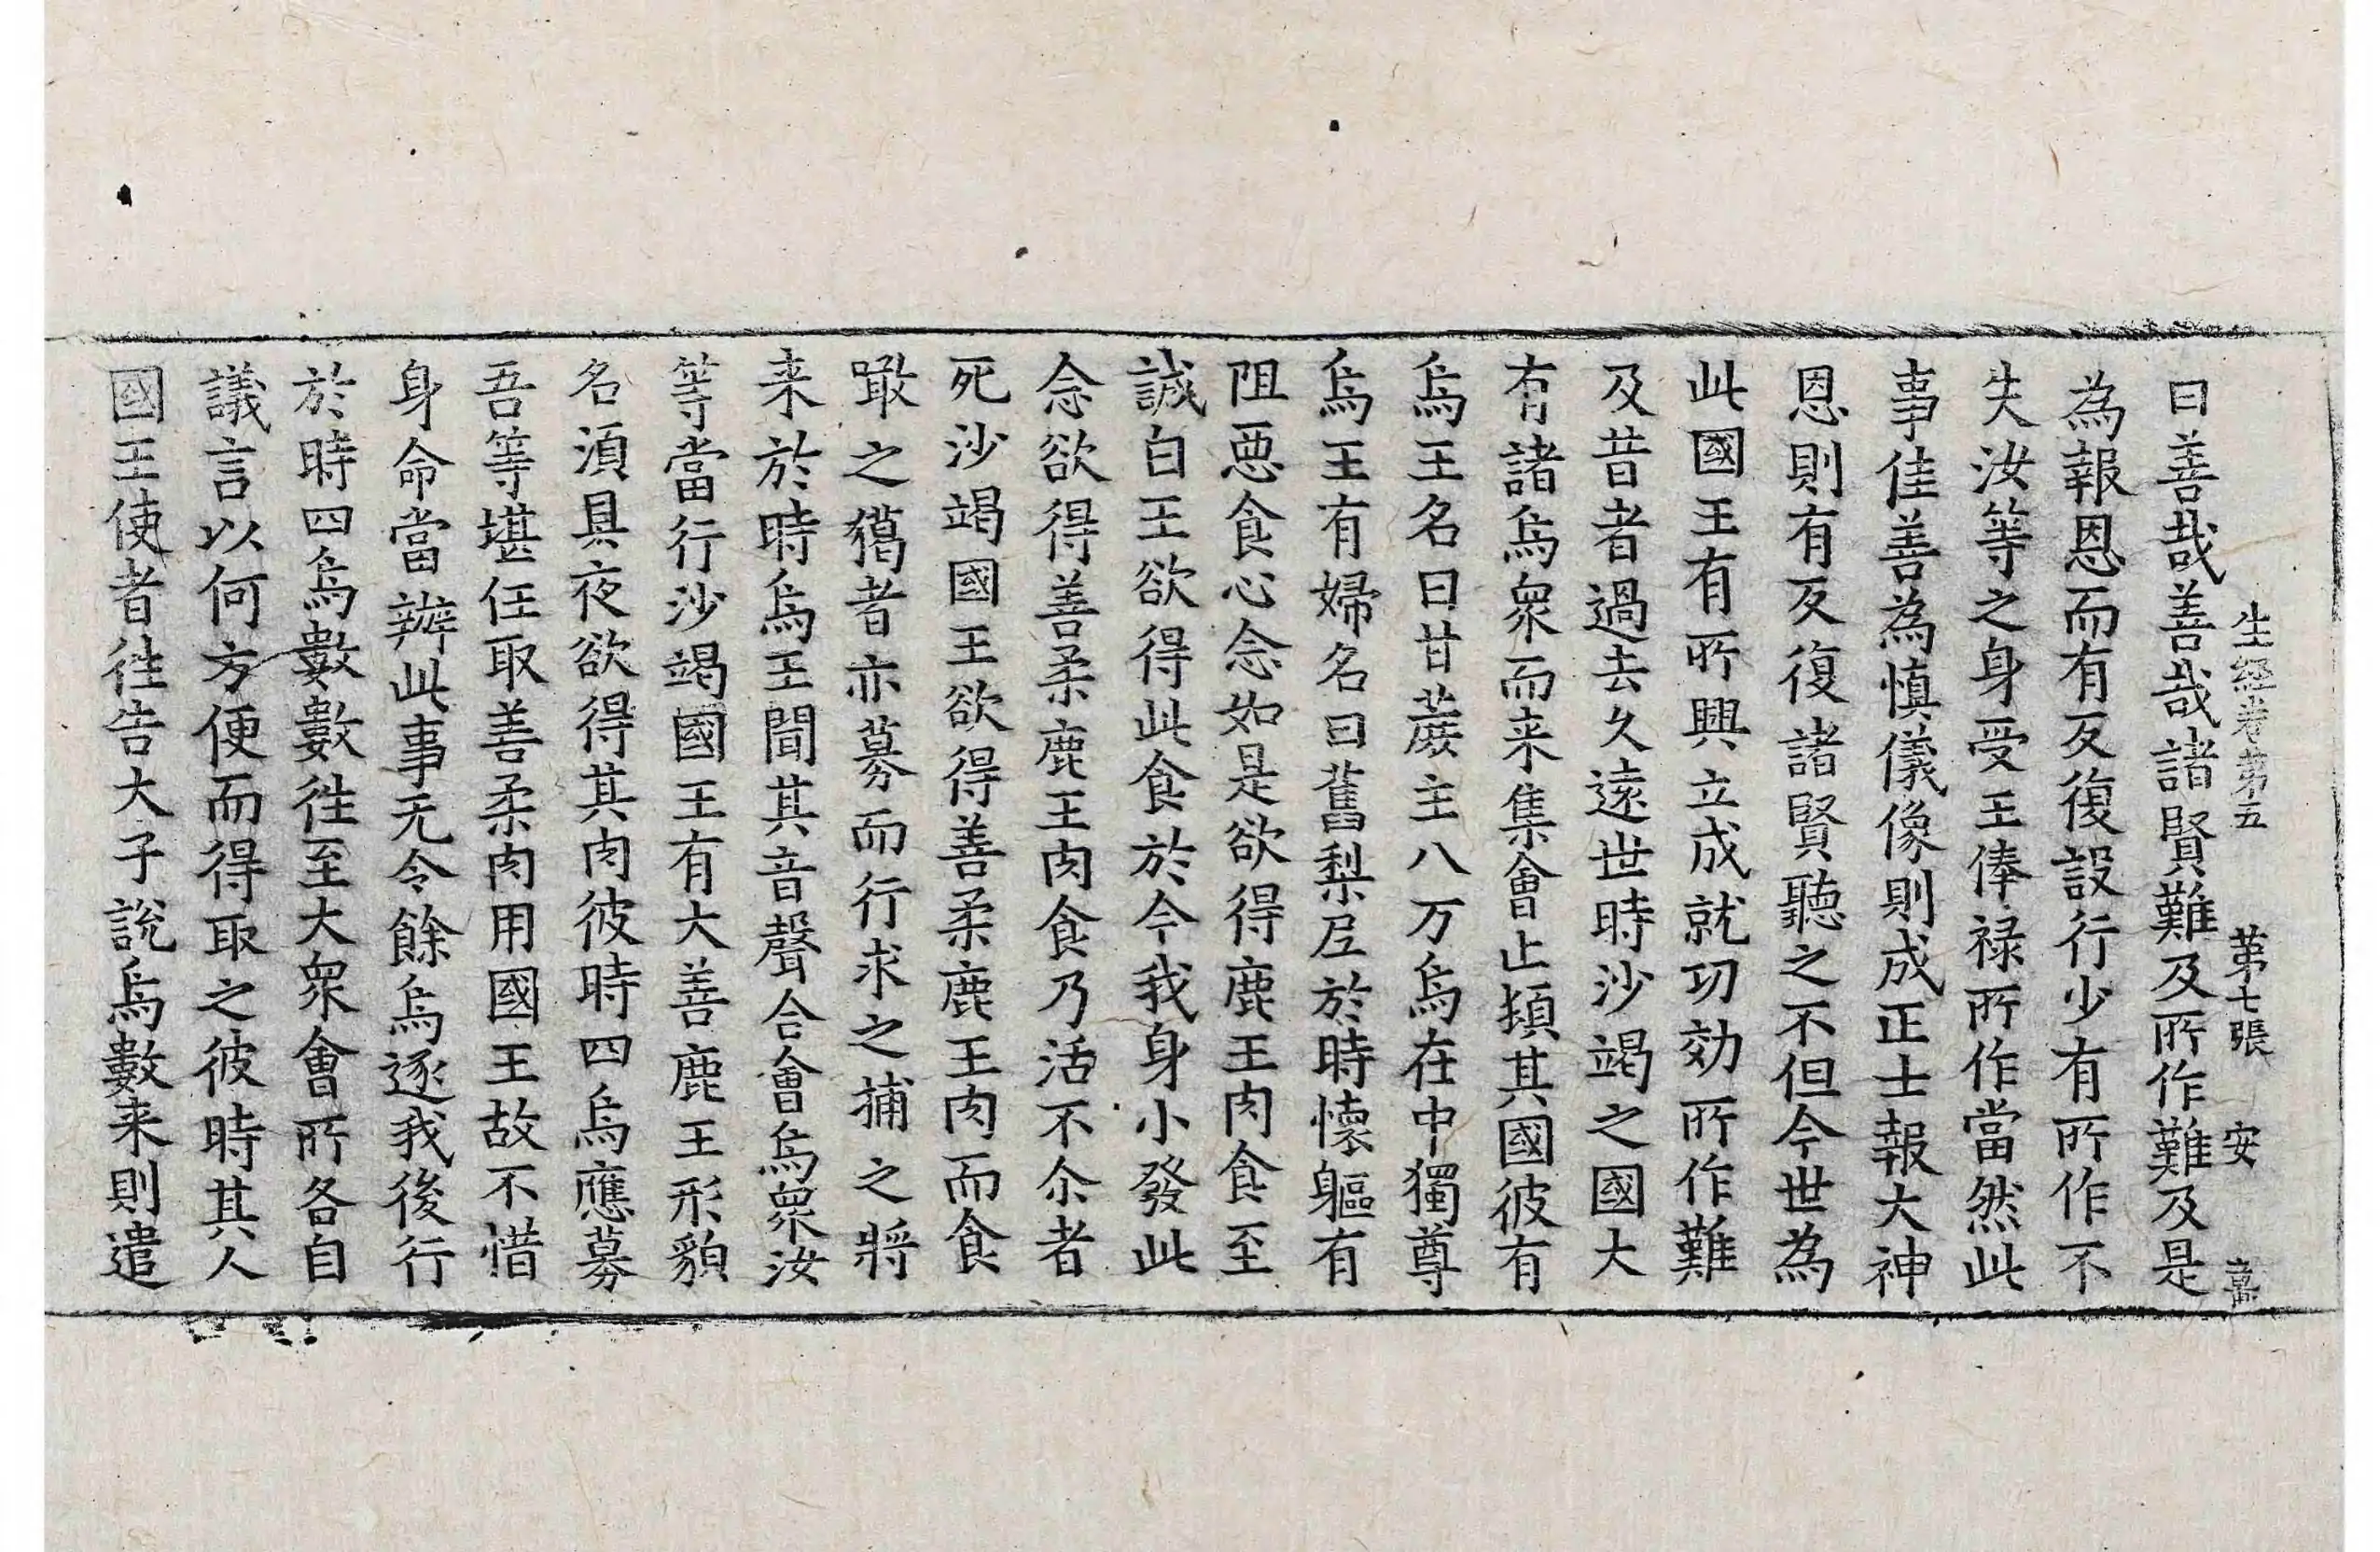 生經卷第五 第七張 安
曰善哉善哉諸賢難及所作難及是
為報恩而有反復設行少有所作不
失汝等之身受王俸禄所作當然此
事佳善為慎儀像則成正士報大神
恩則有反復諸賢聽之不但今世為
此國王有所興立成就功効所作難
及昔者過去久遠世時沙竭之國大
有諸烏衆而来集會止頓其國彼有
烏王名曰甘蔗主八万烏在中獨尊
烏王有婦名曰舊梨尼於時懷軀有
阻惡食心念如是欲得鹿王肉食至
誠白王欲得此食於今我身小發此
念欲得善柔鹿王肉食乃活不尒者
死沙竭國王欲得善柔鹿王肉而食
噉之獦者亦募而行求之捕之將
来於時烏王聞其音聲合會烏衆汝
等當行沙竭國王有大善鹿王形貌
名湏具夜欲得其肉彼時四烏應募
吾等堪任取善柔肉用國王故不惜
身命當辦此事无令餘烏逐我後行
於時四烏數數徃至大衆會所各自
議言以何方便而得取之彼時其人
國王使者徃告大子說烏數来則遣